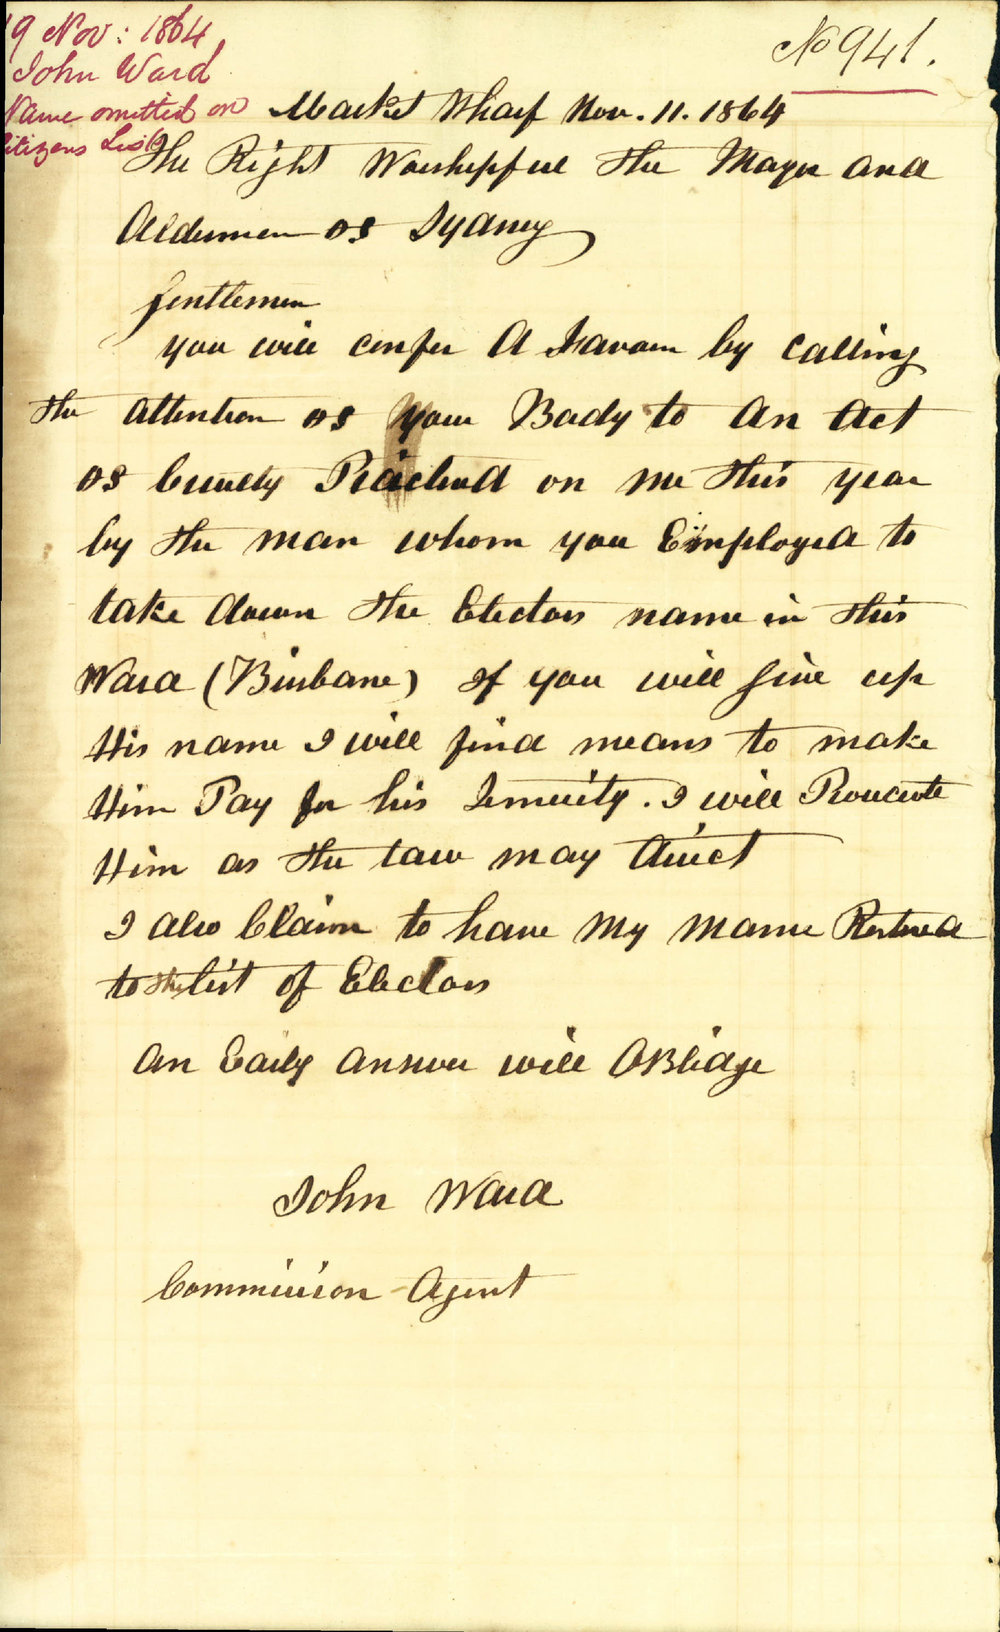 19 Nov: 1864
John Ward
Name omitted on
Citizens List
No 941.
Market Wharf Nov. 11. 1864
The Right Worshipful The Mayor and
Aldermen of Sydney
Gentlemen
you will confer A Favour by calling
the attention of your Body to An Act
of Cruelty Practised on me this year
by the man whom you Employed to
take down the Electors name in this
Ward (Brisbane) If you will give up
His name I will find means to make
Him Pay for his . I will Prosecute
Him as the law may direct
I also Claim to have My Name Restored
to the list of Electors
An Early answer will OBlidge
John Ward
Commission Agent